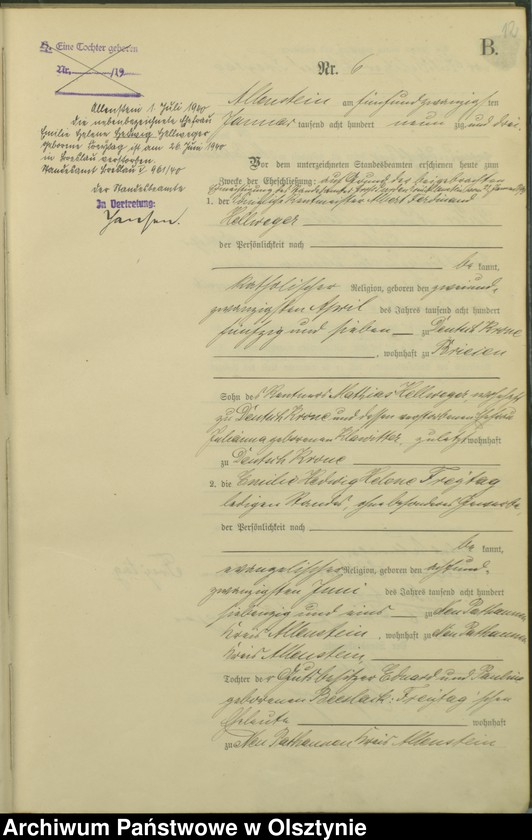 B.
Eine Tochter geboren
Nr. /19
Allenstein 1. Juli 1940
Die nebenbezeichnete Ehefrau
Emilie Helene Hedwig Hellweger
geborne Freytag ist am 26. Juni 1940
in Breslau verstorben.
Standesamt Breslau 461/40
Der Standesbeamte
In Vertretung:
Nr. 6
Allenstein am fünfundzwanzigsten
Januar tausend acht hundert neunzig und drei
Vor dem unterzeichneten Standesbeamten erschienen heute zum
Zwecke der Eheschließung: auf Grund der beigebrachten
Ermächtigung des Standesamts
1. der Albert Ferdinand
Hellweger
der Persönlichkeit nach
be kannt,
katholischer Religion, geboren den zweiund-
zwanzigsten April des Jahres tausend acht hundert
fünfzig und sieben zu Deutsch Krone
, wohnhaft zu Briesen
Sohn des Rentners Mathias Hellweger, wohnhaft
zu Deutsch Krone und dessen verstorbenen Ehefrau
Julianna geborenen Klawitter, zuletzt wohnhaft
zu Deutsch Krone
2. die Emilie Hedwig Helene Freytag
ledigen Standes, ohne besonderes Gewerbe
der Persönlichkeit nach
be kannt,
evangelischer Religion, geboren den achtund-
zwanzigsten Juni des Jahres tausend acht hundert
siebenzig und eins zu Neu
Kreis Allenstein, wohnhaft zu Neu
Kreis Allenstein
Tochter der Gutsbesitzer Eduard und Pauline
geborenen Freytag'schen
Eheleute wohnhaft
zu Neu Kreis Allenstein
Archiwum Państwowe w Olsztynie